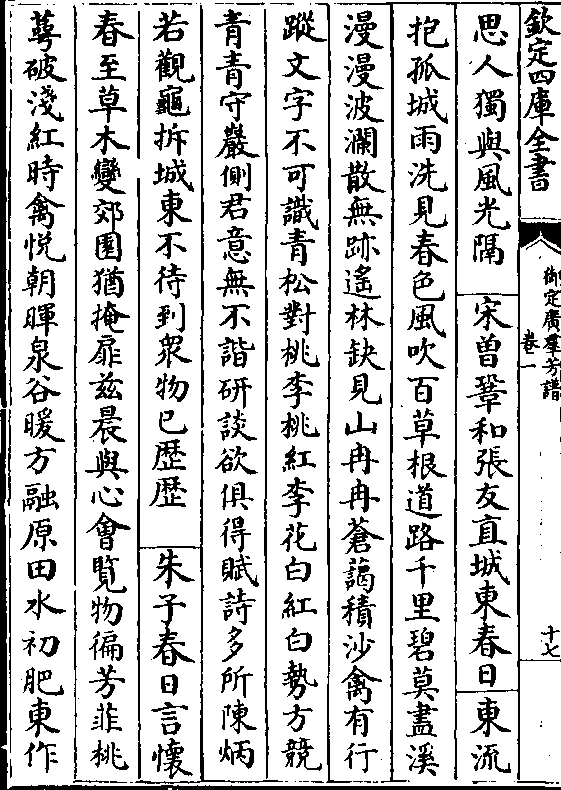 欽定四庫全書
御定廣羣芳譜
卷一
十七
思人獨與風光隔　宋曾鞏和張友直城東春日　東流
抱孤城雨洗見春色風吹百草根道路千里碧莫盡溪
漫漫波瀾散無跡遙林缺見山冉冉蒼藹積沙禽有行
蹤文字不可識青松對桃李桃紅李花白紅白勢方競
青青守巖側君意無不諧研談欲俱得賦詩多所陳炳
若觀龜拆城東不待到衆物已歴歴　朱子春日言懷
春至草木變郊園猶掩扉兹晨與心會覽物徧芳菲桃
萼破淺紅時禽悦朝暉泉谷暖方融原田水初肥東作